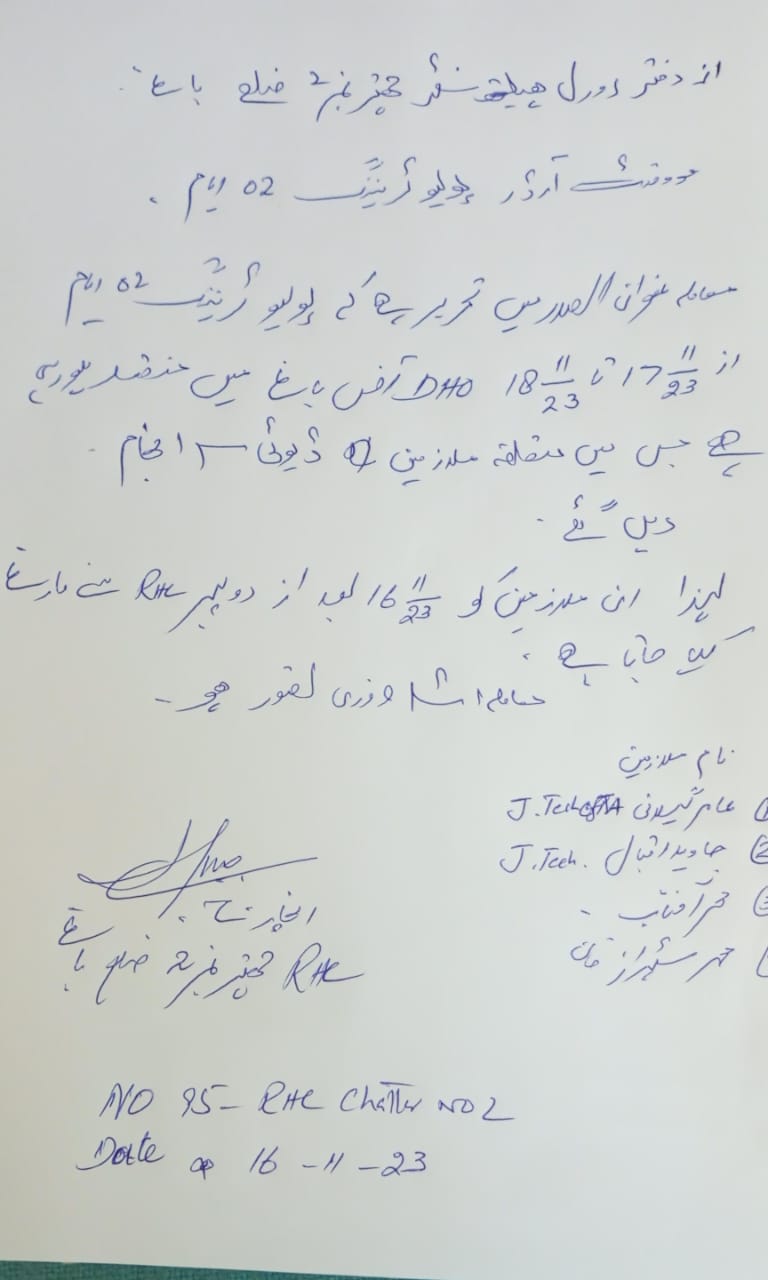 از دفتر رورل ہیلتھ سنٹر چھتر نمبر 2 ضلع باغ
موومنٹ آرڈر پولیو ٹریننگ 02 ایام .
معاملہ عنوان الصدر میں تحریر ہے کہ پولیو ٹریننگ 02 ایام
از 17 11/23 تا 18 11/23 DHO آفس باغ میں منعقد ہورہی
ہے جس میں متعلقہ ملازمین ڈیوٹی سرانجام
دیں گئے .
لہذا ان ملازمین کو 16 11/23 بعد از دوپہر RHC سے فارغ
کیا جاتا ہے .
معاملہ اشد ضروری تصور ہو -
نام ملازمین
1 عامر گیلانی J.Tech
2 جاوید اقبال J.Tech.
3 محمد آفتاب -
محمد شہراز خان
انچارج
RHC چھتر نمبر 2 ضلع باغ
NO 95 - RHC Chatter NO 2
Date 16 - 11 - 23